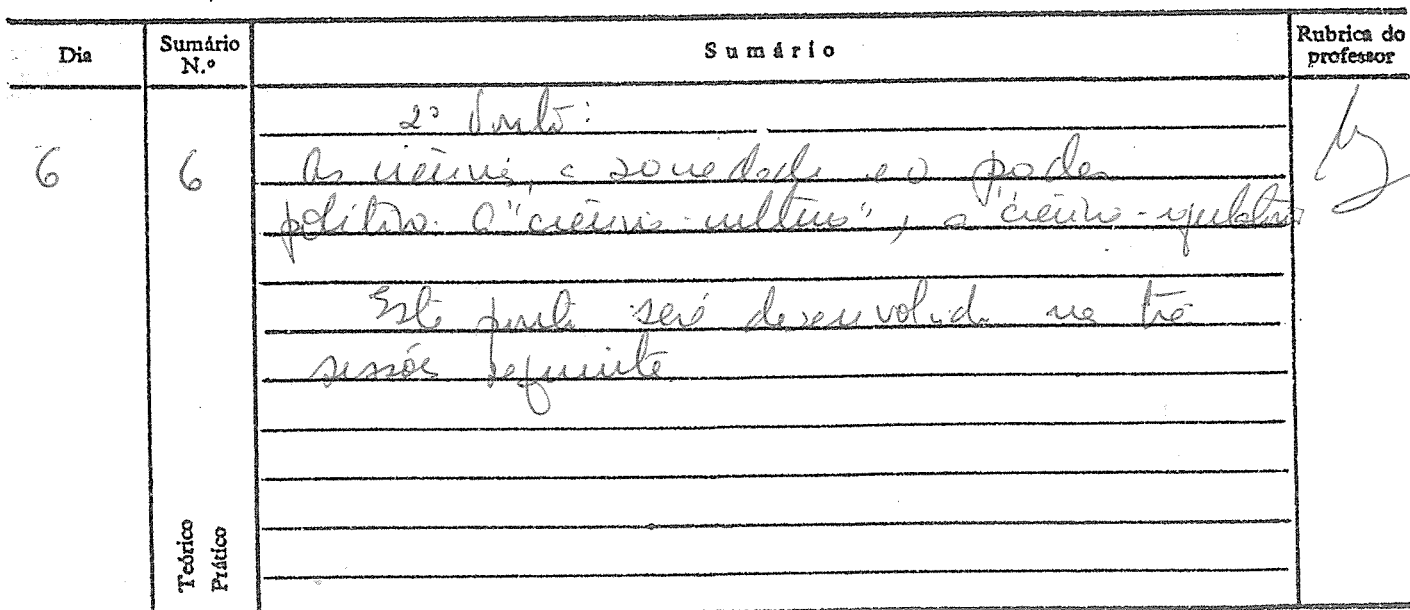 Dia Sumário N.º Sumário Rubrica do professor
2º Ponto:
6 6 As ciências, a sociedade e o poder
político. A "ciência-cultura", a "ciência-
Este ponto será desenvolvido nas três
sessões seguintes
Teórico
Prático